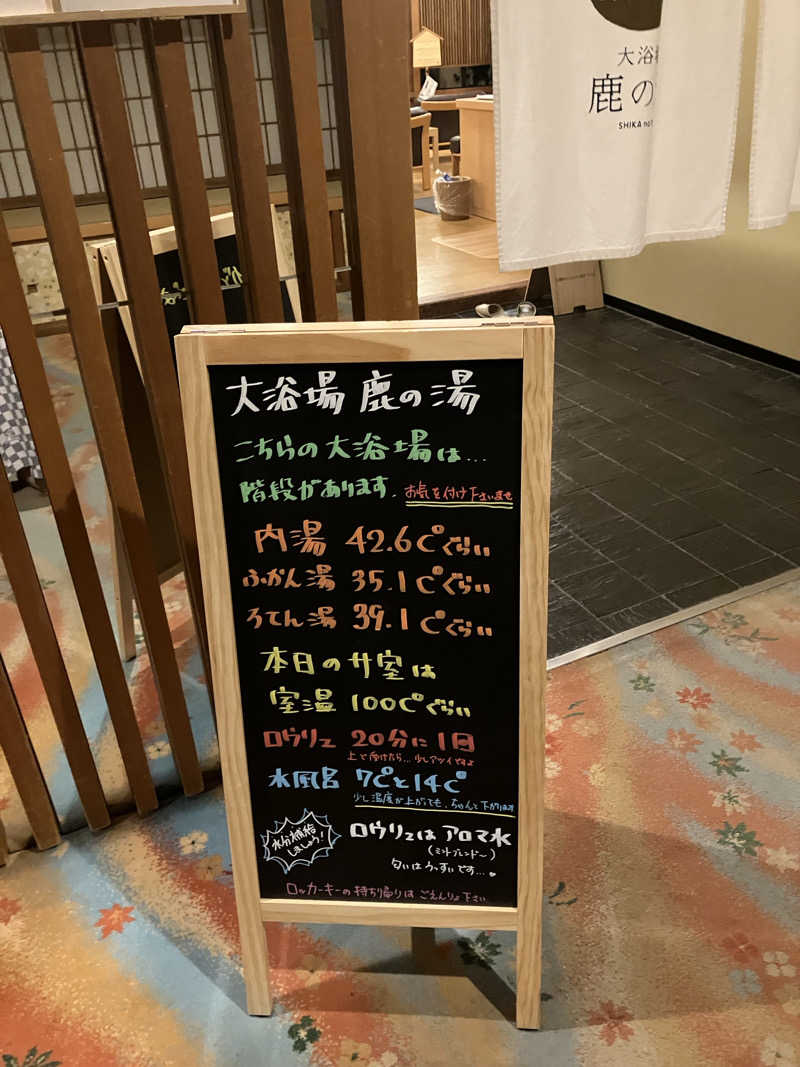 大浴
鹿の
SHIKA no
大浴場 鹿の湯
こちらの大浴場は...
階段があります. お気を付け下さいませ
内湯 42.6℃ぐらい
ふかん湯 35.1℃ぐらい
ろてん湯 39.1℃ぐらい
本日のサ室は
室温 100℃ぐらい
ロウリュ 20分に1回
上を向けたら... 少しアツイですよ
水風呂 7℃と14℃
少し温度が上がっても、ちゃんと下がります
水分補給
しましょう!
ロウリュは アロマ水
(ミントブレンド〜)
匂いはうっすいです...
ロッカーキーの持ち帰りは ごえんりょ下さい